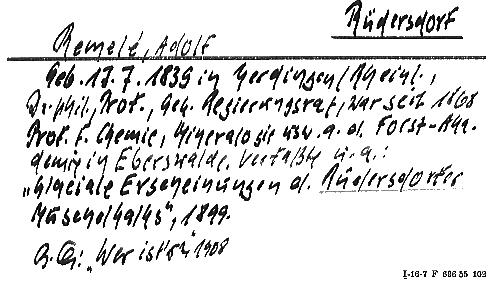 Rüdersdorf
Remelé, Adolf
Geb. 17.7.1839 in Uerdingen/Rheinl.,
Dr. phil., Prof., Geh. Regierungsrat, war seit 1868
Prof. f. Chemie, Mineralogie usw. a. d. Forst-Aka-
demie in Eberswalde. Verfaßte u. a.:
"Glaciale Erscheinungen d. Rüdersdorfer
Muschelkalks", 1899.
B. Qu.: "Wer ist's" 1908
I-16-7 F 686 55 102